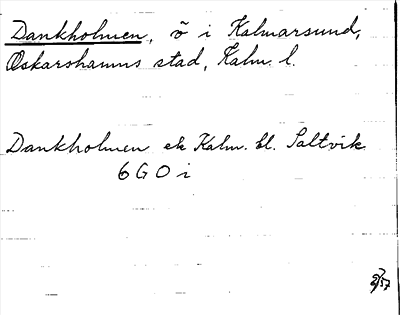 Dankholmen, ö i Kalmarsund,
Oskarshamns stad, Kalm. l.
Dankholmen ek Kalm. bl. Saltvik
6 G 0 i